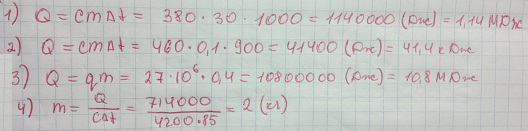 1) Q = cmΔt = 380 · 30 · 1000 = 11400000 (Дж) = 11,4 МДж
2) Q = cmΔt = 460 · 0,1 · 900 = 41400 (Дж) = 41,4 кДж
3) Q = qm = 27 · 10⁶ · 0,4 = 10800000 (Дж) = 10,8 МДж
4) m = Q / cΔt = 714000 / 4200 · 85 = 2 (кг)